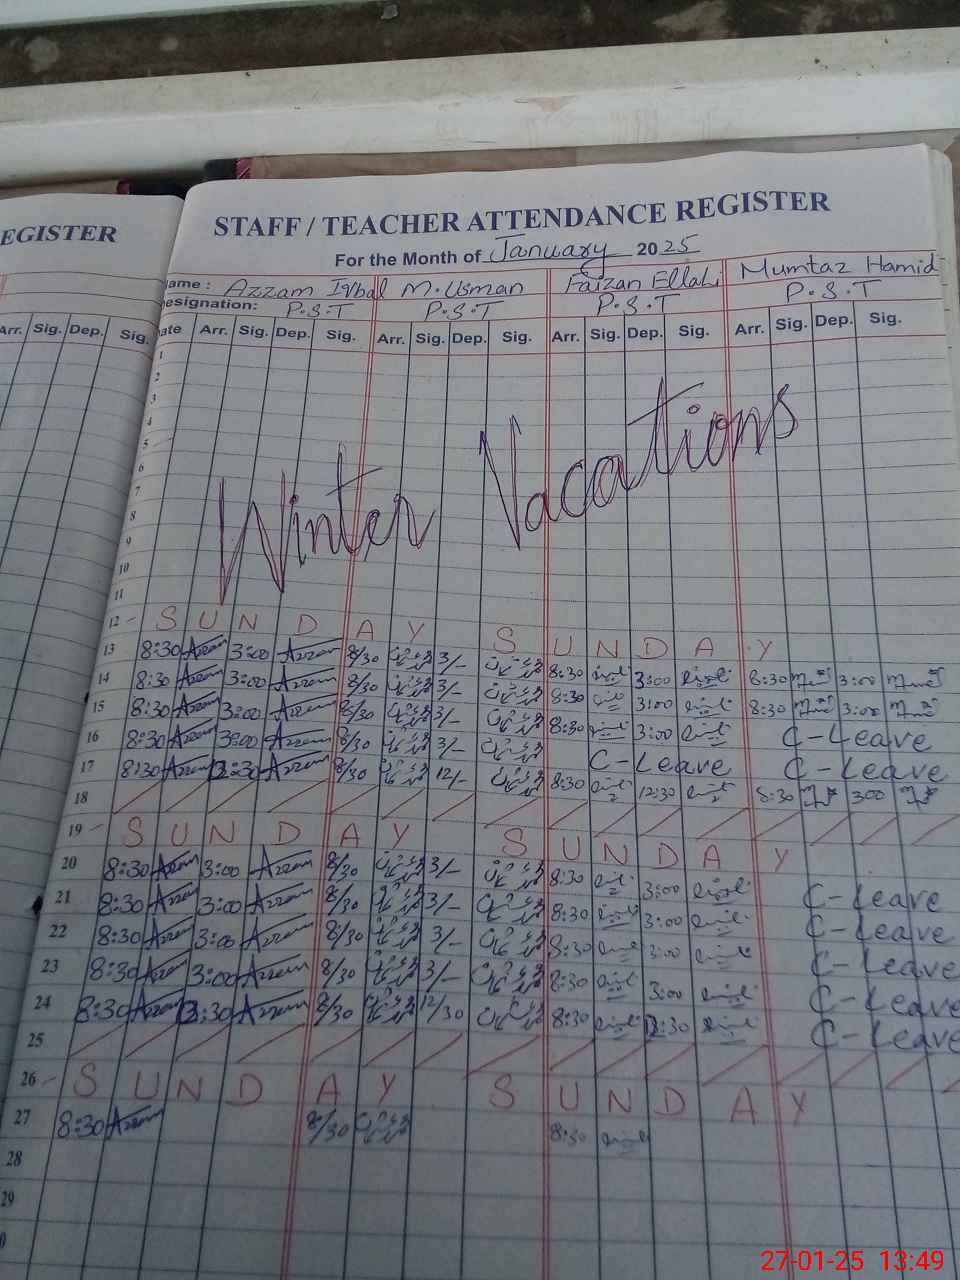 EGISTER
STAFF / TEACHER ATTENDANCE REGISTER
For the Month of January 2025
ame: Azzam Iqbal M. Usman Faizan Ellahi Mumtaz Hamid
esignation: P.S.T P.S.T P.S.T P.S.T
Arr. Sig. Dep. Sig. ate Arr. Sig. Dep. Sig. Arr. Sig. Dep. Sig. Arr. Sig. Dep. Sig. Arr. Sig. Dep. Sig.
1
2
3
4
5
6
7
8
9
10
11
Winter Vacations
12 SUNDAY SUNDAY
13 8:30 Azzam 3:00 Azzam 8/30 3/- 8:30 3:00 8:30 3:00
14 8:30 Azzam 3:00 Azzam 8/30 3/- 8:30 3:00 8:30 3:00
15 8:30 Azzam 3:00 Azzam 8/30 3/- 8:30 3:00 C-Leave
16 8:30 Azzam 3:00 Azzam 8/30 3/- C-Leave C-Leave
17 8:30 Azzam 12:30 Azzam 8/30 12/- 8:30 12:30 8:30 300
18
19 SUNDAY SUNDAY
20 8:30 Azzam 3:00 Azzam 8/30 3/- 8:30 3:00 C-Leave
21 8:30 Azzam 3:00 Azzam 8/30 3/- 8:30 3:00 C-Leave
22 8:30 Azzam 3:00 Azzam 8/30 3/- 8:30 3:00 C-Leave
23 8:30 Azzam 3:00 Azzam 8/30 3/- 8:30 3:00 C-Leave
24 8:30 Azzam 12:30 Azzam 8/30 12/30 8:30 12:30 C-Leave
25
26 SUNDAY SUNDAY
27 8:30 Azzam 8/30 8:30
28
29
27-01-25 13:49